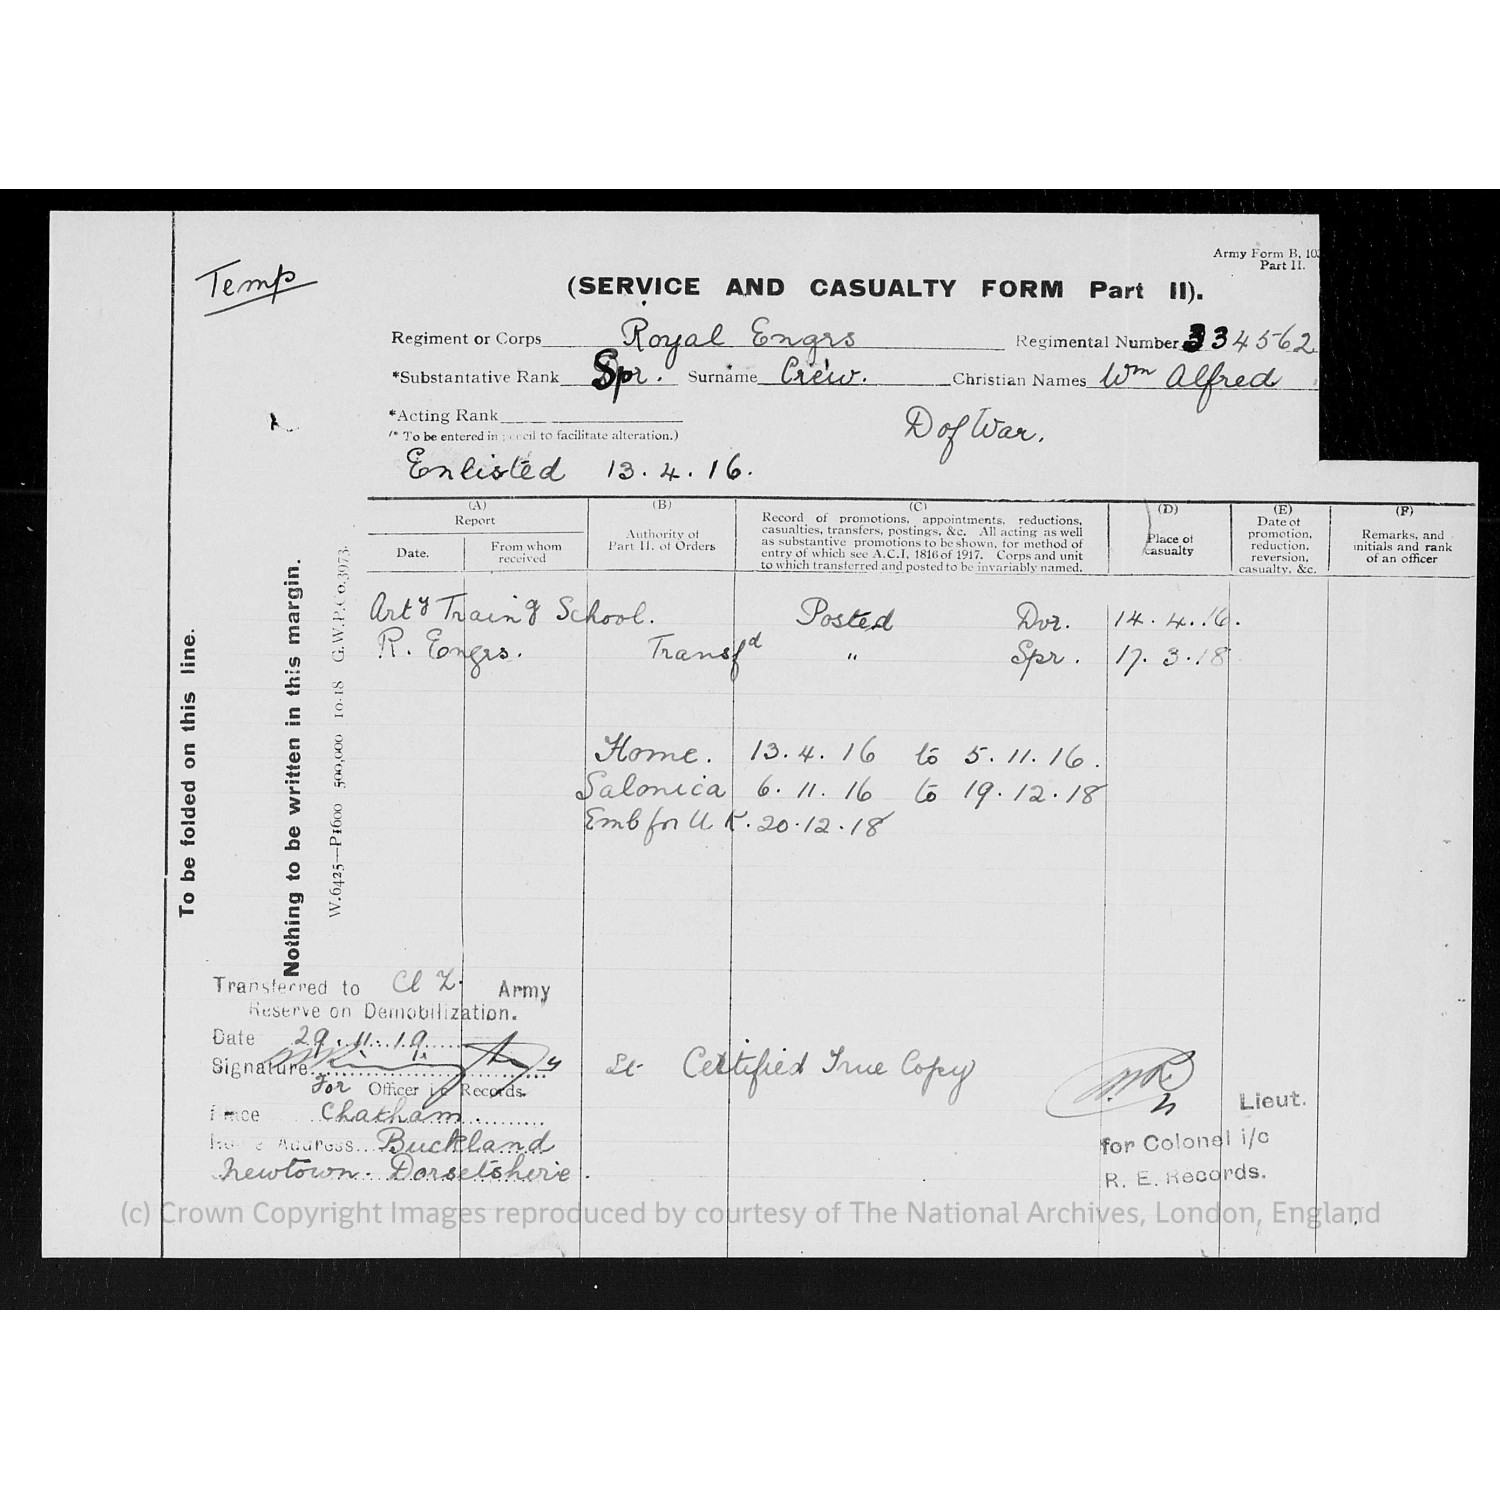 Temp
Army Form B. 10
Part II.
(SERVICE AND CASUALTY FORM Part II).
Regiment or Corps Royal Engrs Regimental Number 334562
*Substantative Rank Spr. Surname Crew. Christian Names Wm Alfred
*Acting Rank
(* To be entered in pencil to facilitate alteration.)
D of War.
Enlisted 13.4.16.
(A) (B) (C) (D) (E) (F)
Report
Date. From whom received
Authority of Part II. of Orders
Record of promotions, appointments, reductions,
casualties, transfers, postings, &c. All acting as well
as substantive promotions to be shown, for method of
entry of which see A.C.I. 1816 of 1917. Corps and unit
to which transferred and posted to be invariably named.
Place of casualty
Date of promotion, reduction, reversion, casualty, &c.
Remarks, and initials and rank of an officer
Arty Traing School. Posted Dvr. 14.4.16.
R. Engrs. Transfd " Spr. 17.3.18
Home. 13.4.16 to 5.11.16.
Salonica 6.11.16 to 19.12.18
Emb for U K. 20.12.18
To be folded on this line.
Nothing to be written in this margin.
W.6425—P1600 500,000 10-18 G.W.P.Co.3973.
Transferred to Cl Z. Army
Reserve on Demobilization.
Date 29.11.19
Signature
For Officer i/c Records.
Place Chatham
Home Address Buckland
Newtown. Dorsetshire.
Certified True Copy
Lieut.
for Colonel i/c
R. E. Records.
(c) Crown Copyright Images reproduced by courtesy of The National Archives, London, England